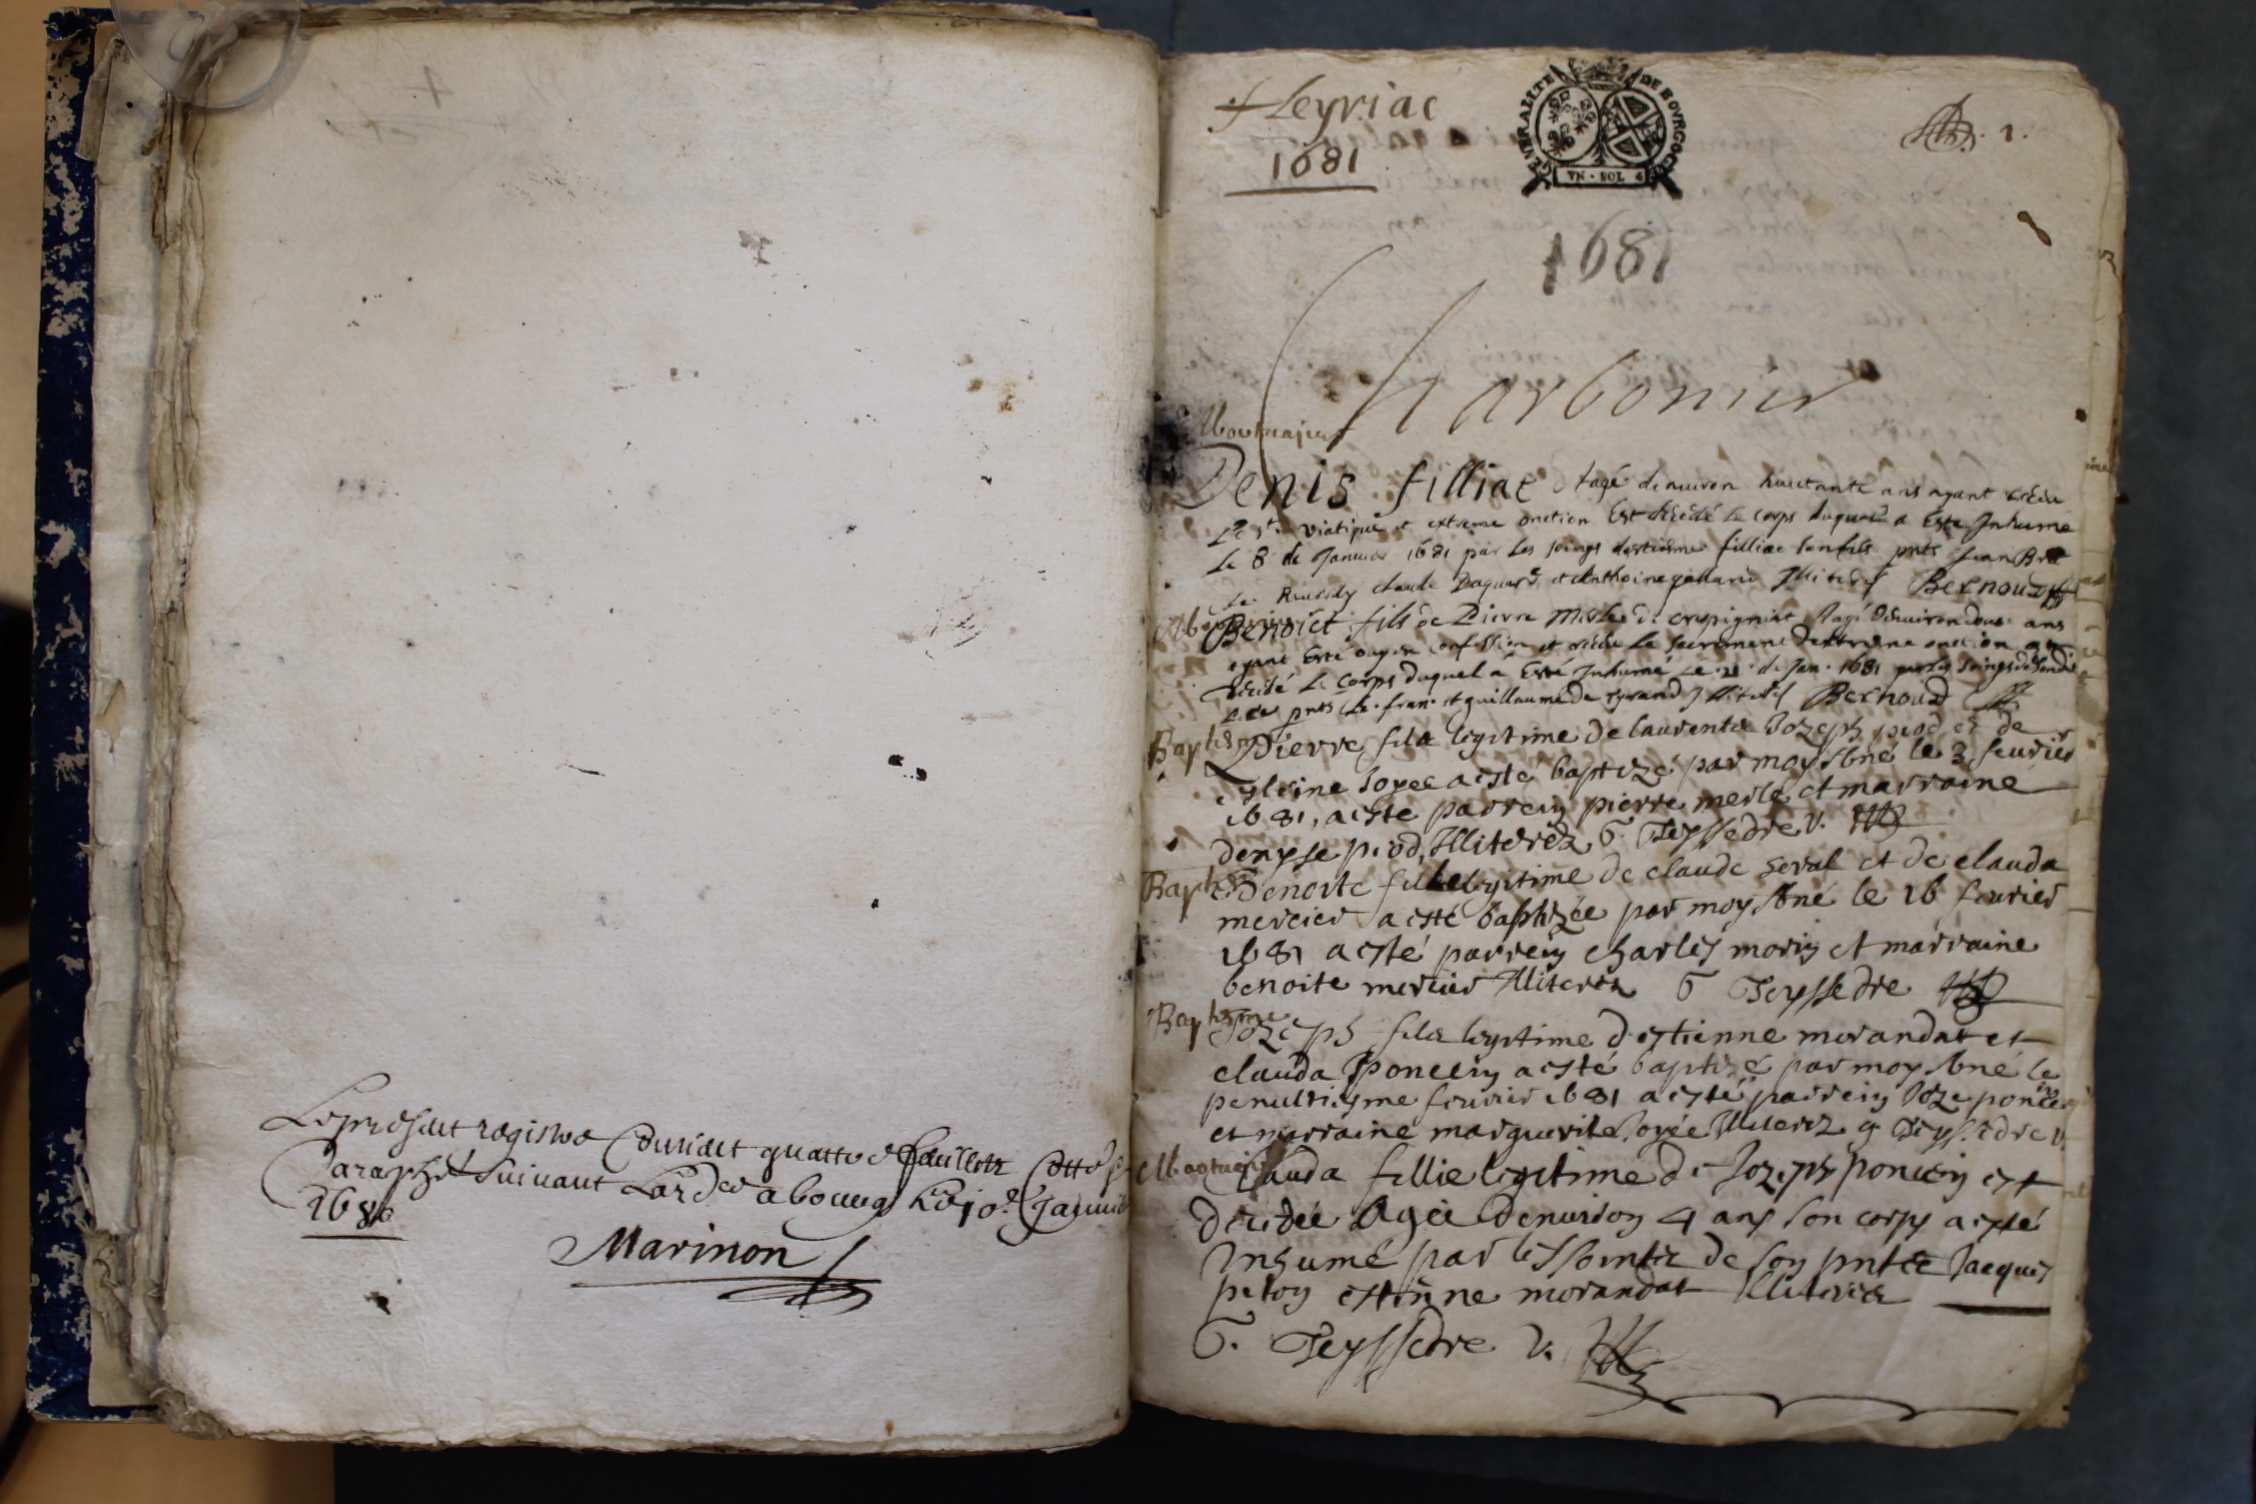 Le present registre Contenant quattre feuillets Cotté &
Paraphé suivant Lord^ce a bourg Le 10^e Janvier
1680
Marinon
fleyriac
1681
GENERALITE DE BOVRGOGNE
VN · SOL
1.
1681
Charbonier
Mortuaire
Denis filliac agé denuiron huictante ans ayant receu
Le st. viatique et extreme onction Est decedé le corps duquel a Esté Inhumé
Le 8 de Januier 1681 par les soings destienne filliac son fils pnts Jean
claude et Anthoine Illiterés Bernoud
Benoict fils de Pierre Merle de crepigniat agé denuiron douze ans
ayant Esté ouy en confession et receu le sacrement dextreme onction
decedé Le Corps duquel a Esté Inhumé Le 21 de Jan. 1681 par les soings de sondit
pnts fran. et guillaume Illiterés Bernoud
Baptesme Pierre fils legitime de laurent Jozeph piod et de
soyee a esté baptizé par moy sbné le 3 feurier
1681, a esté parrein pierre merle et marraine
denyse piod, Illiterez G. Teyssedre v.
Bapt Benoite fille legitime de claude seral et de clauda
mercier a esté baptizée par moy sbné le 16 feurier
1681 a esté parrein charles morin et marraine
benoite mercier Illiterez G Teyssedre
Baptesme Jozeph fils legitime d'estienne morandat et
clauda Poncein a esté baptizé par moy sbné le
penultiesme feurier 1681 a esté parrein Joze poncein
et marraine marguerite soyée Illiterez G Teyssedre v.
Mortuaire Clauda fillie legitime de Jozeph poncein est
decedée Agée denuiron 4 ans son corps a esté
Inhumé par les soints de son pnts Jacques
peton estienne morandat Illiterés
G. Teyssedre v.